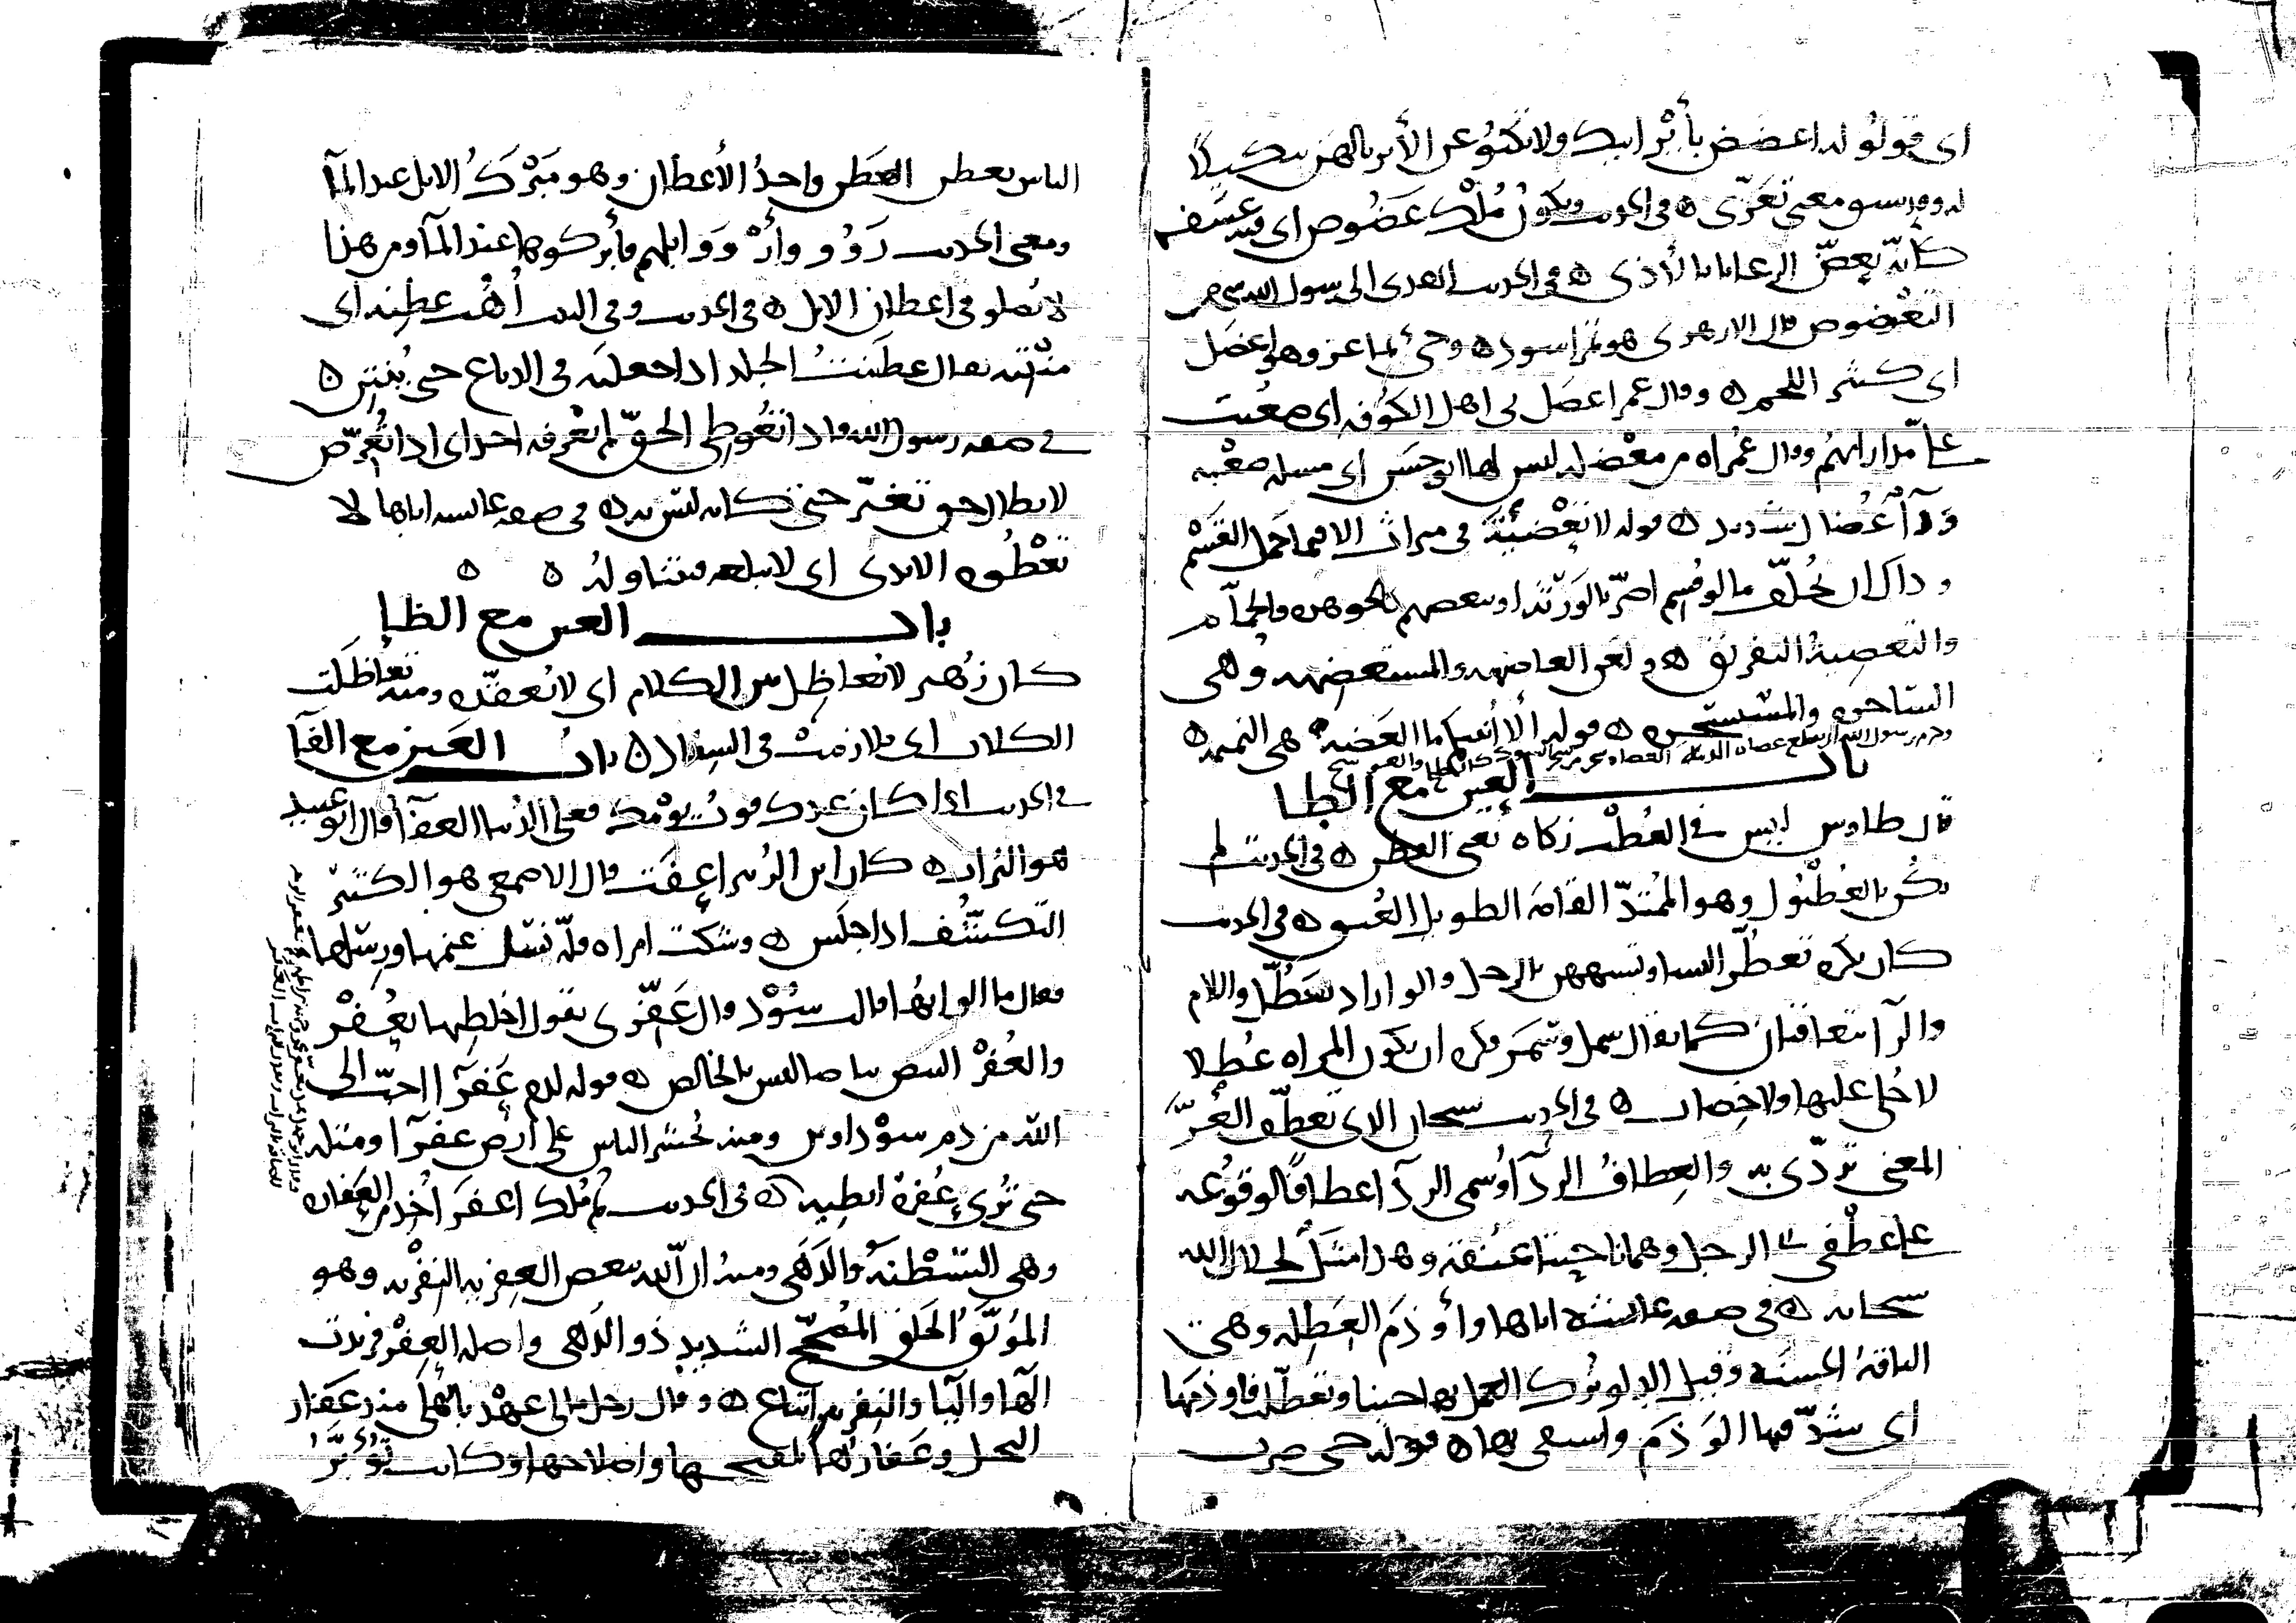 اى قولو له اعضض بأير ابيك ولا تكنو عن الأير بالهن تنكيلا
له وقد سبق معنى تعزّى ۞ فى الحديث ويكون مُلْك عَضُوض اى فيه عسف
كأنه يعضّ الرعايا بالأذى ۞ فى الحديث اهدى الى رسول الله
التعْضوض قال الازهرى هو تمر اسود ۞ وهو اعضل
اى كثير اللحم ۞ وقال عمر اعضل بى اهل الكوفه اى صعُبت
علىّ مداراتهم وقال عُمر اه من معْضله ليس لها ابو حسن اى مسله صعْبه
ودآ عُضال شديد ۞ قوله لا تعْضيَة فى ميراث الا فيما حمل القَسْم
وذاك ان يُخلّف ما لو قُسم اضرّ بالورثة او ببعضهم كالجوهره والحمّام
والتعضية التفريق ۞ ولعن العاضهه والمستعضهه وهى
الساحره والمستسحره ۞ قوله ألا أنبيكم ما العَضه هى النميمه ۞
باب العين مع الطا
قال طاوس ليس فى العُطْب زكاه يعنى القطن ۞ فى الحديث لم
يكن بالعُطْبول وهو الممتدّ القامة الطويل العُنق ۞ فى الحديث
كان يكره تعطّر النسا وتشبههن بالرجال قالوا اراد تعطّل واللام
والرآ يتعاقبان كما يقال سمل وسمر وكره ان تكون المراه عُطلا
لا حُلى عليها ولا خضاب ۞ فى الحديث سبحان الذى تعطّف العزّ
المعنى تردّى به والعِطاف الردآ وسمى الردآ عطافًا لوقوعه
على عطْفى الرجل وهما ناحيتا عنقه وهذا مثل لجلال الله
سبحانه ۞ فى صفه عايشه اباها وأوذم العَطِله وهى
الناقة الحسنه وقيل الدلو تُرك العمل بها حينا وتعطّلت فاوذمها
اى شدّ فيها الوَذَم واستقى بها ۞ قوله حتى ضرب
الناس بعطن العَطَن واحدُ الأعطان وهو مَبْرَكُ الابل عند المآ
ومعنى الحديث رَوُو وأرْوَوا ابلهم فأبركوها عند المآ ومن هذا
لا تُصلو فى اعطان الابل ۞ فى الحديث وفى البيت أُهُب عطِنه اى
منْتنه يقال عطَنتُ الجلد اذا جعلته فى الدباغ حتى يُنتن ۞
فى صفه رسول الله فاذا تُعُوطى الحقّ لم يَعْرفه احد اى اذا تُعُرّض
لابطال حق تغيّر حتى كانه ليس به ۞ فى صفه عايشه اباها لا
تعْطُوه الايدى اى لا تبلغه فتتناوله ۞ ۞
باب العين مع الظا
كان زُهير لا يُعاظِل من الكلام اى لا يُعقّده ومنه تعاظلَت
الكلاب اى تلازمت فى السِفاد ۞ باب العَين مع الفآ
فى الحديث اذا كان عندك قوت يومك فعلى الدُنيا العفآ قال ابو عبيد
هو التراب ۞ كان ابن الزبير اعفَت قال الاصمعى هو الكثير
التكشّف اذا جلس ۞ وشكت امراه قلّة نسل غنمها ورِسْلها
فقال ما الوانُها قالت سُوْد قال عَفّرى يقول اخلطيها بعُفْر
والعُفْر البيض بياضا ليس بالخالص ۞ قوله لدم عَفرآ احبّ الى
الله من دم سوْداوين ومنه تُحشر الناس على أرض عفرآ ومثله
حتى تُرى عُفرة ابطيه ۞ فى الحديث ثم مُلك اعفَر أُخذ من العَفاره
وهى الشيْطنة والدَهى ومنه ان الله يبغض العِفريه النِفْريه وهو
المُوثق الخلق المُصحّح الشديد ذو الدَهى واصله العِفْر فزيدت
الهآ واليآ والنفريه اتباع ۞ وقال رجل مالى عهْد باهلى منذ عَفار
النخل وعَفارُها تلقيحها واصلاحها وكانت تُؤبَّر